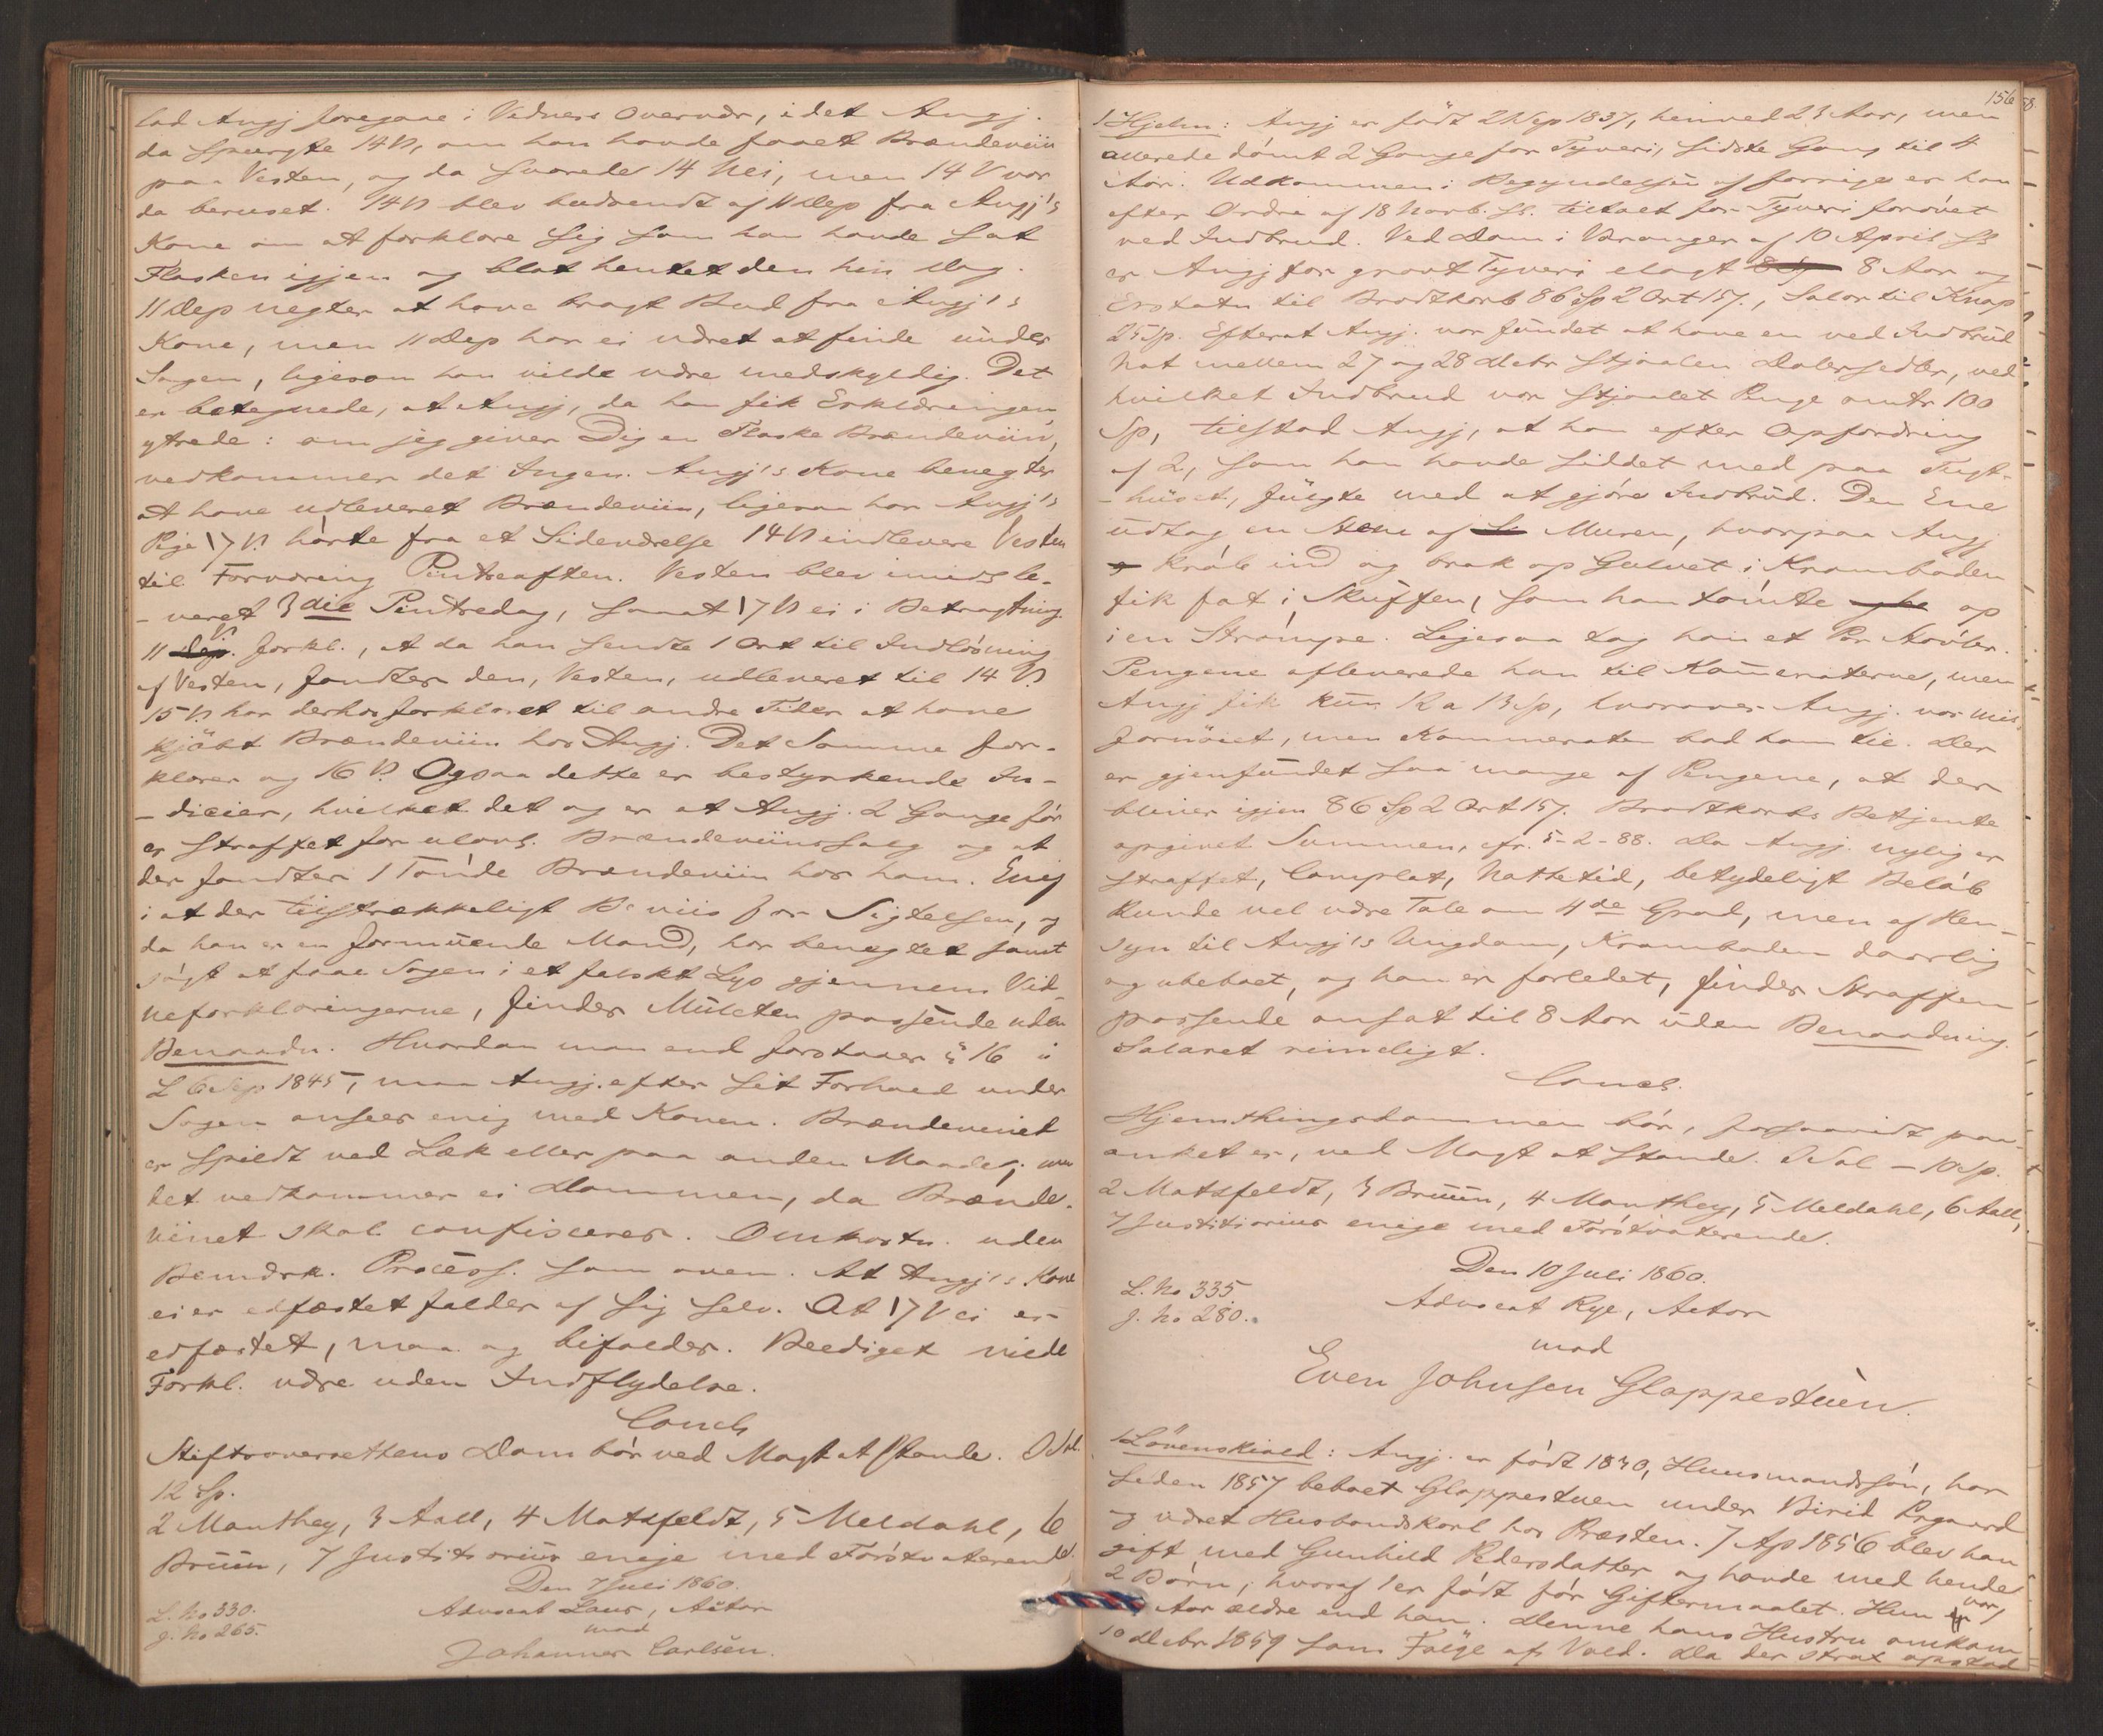 lod Angj foregaae i Vidners Overvær, idet Angj.
da spurgte 14 V, om han havde faaet Brændeviin
paa Vesten, og da svarede 14 Nei, men 14 V var
da beruset. 14 V blev budsendt af 11 Dep fra Angj's
Kone om at forklare sig som han havde sat
Flasken igjen og blot hentet den hin Dag.
11 Dep negter at have bragt Bud fra Angj's
Kone, men 11 Dep har ei været at finde under
Sagen, ligesom han vilde være medskyldig. Det
er betegnede, at Angj, da han fik Erklæringen,
ytrede: om jeg giver Dig en Flaske Brændeviin,
vedkommer det Ingen. Angj's Kone benegter
at have udleveret Brændeviin, ligesom har Angj's
Pige 17 V. hørte fra et Sideværelse 14 V indlevere Vesten
til Forvaring Pintseaften. Vesten blev imids le-
-veret 3die Pintsedag, saa at 17 V ei i Betragtning.
11 V. forkl., at da han sendte 1 Ort til Indløsning
af Vesten, fandtes den, Vesten, udleveret til 14 V.
15 V har derhos forklaret til andre Tider at have
kjøbt Brændeviin hos Angj. Det Samme for-
klarer og 16 V. Ogsaa dette er bestyrkende In-
-dicier, hvilket det og er at Angj. 2 Gange før
er straffet for ulovl. Brændeviinssalg og at
der fandtes 1 Tønde Brændeviin hos ham. Enig
i at der tilstrækkeligt Beviis for Sigtelsen, og
da han er en formuende Mand, har benegtet samt
søgt at faae Sagen i et falskt Lys gjennem Vid-
neforklaringerne, finder Mulcten passende uden
Benaadn. Hvordan man end forstaaer § 16 i
L 6 Sep 1845, maa Angj. efter sit Forhold under
Sagen ansees enig med Konen. Brændevinet
er spildt ved Læk eller paa anden Maade; men
det vedkommer ei Dommen, da Brænde-
vinet skal confisceres. Omkostn. uden
Bemærk. Process. som oven. At Angj's Kone
ei er edfæstet falder af sig selv. At 17 V ei er
edfæstet, maa og bifaldes. Beediget vilde
Forkl. være uden Indflydelse.
Concl.
Stiftsoverrettens Dom bør ved Magt at stande. D Sal.
12 Sp.
2 Manthey, 3 Aall, 4 Motzfeldt, 5 Meldahl, 6
Bruun, 7 Justitiarius enige med Førstvoterende.
Den 7 Juli 1860.
L. No 330.
J. No 265.
Advocat Laus, Actor
mod
Johannes Carlsen.
156
1 Hjelm: Angj er født 2 Sep 1837, henved 23 Aar, men
allerede dømt 2 Gange for Tyveri, sidste Gang til 4
Aar. Udkommen i Begyndelsen af forrige er han
efter Ordre af 18 Marts. ds. tiltalt for Tyveri forøvet
ved Indbrud. Ved Dom i Varanger af 10 April ds
er Angj for grovt Tyveri elagt 8 Aar og
Erstatn til Brodtkorb 86 Sp 2 Ort 15 ?., Salar til Knap
25 Sp. Efterat Angj. var fundet at have en ved Indbrud
Nat mellem 27 og 28 Debr stjaalen Dalerseddel, ved
hvilket Indbrud var stjaalet Penge omtr 100
Sp, tilstod Angj, at han efter Opfordring
af 2, som han havde siddet med paa Tugt-
-huset, fulgte med at gjøre Indbrud. Den Ene
udtog en Steen af Muren, hvorpaa Angj
krøb ind og brak op Gulvet i Kramboden
fik fat i Skuffen, som han tømte op
i en Strømpe. Ligesaa tog han et Par Støvler.
Pengene afleverede han til Kameraterne, men
Angj fik kun 12 a 13 Sp, hvorover Angj. var mis-
fornøiet, men Kammeraten bad ham tie. Der
er gjenfundet saa mange af Pengene, at der
bliver igjen 86 Sp 2 Ort 15 ?. Brodtkorbs Betjente
opgivet Summen, cfr. 5-2-88. Da Angj. nylig er
straffet, Complot, Nattetid, betydeligt Beløb
kunde vel være Tale om 4de Grad, men af Hen-
syn til Angj's Ungdom, Kramboden daarlig
og ubeboet, og han er forledet, finder Straffen
passende ansat til 8 Aar uden Benaadning.
Salaret rimeligt.
Concl.
Hjemthingsdommen bør, forsaavidt paa-
anket er, ved Magt at stande. D Sal - 10 Sp.
2 Motzfeldt, 3 Bruun, 4 Manthey, 5 Meldahl, 6 Aall,
7 Justitiarius enige med Førstvoterende.
Den 10 Juli 1860.
L. No 335.
J. No 280.
Advocat Rye, Actor
mod
Even Johnsen Glappestuen.
1 Løvenskiold: Angj. er født 1830, Huusmandssøn, har
siden 1857 beboet Glappestuen under Birid Prgaard
og været Husbondskarl hos Præsten. 7 Ap 1856 blev han
gift med Gunhild Pedersdatter og havde med hende
2 Børn, hvoraf 1 er født før Giftermaalet. Hun var
Aar ældre end han. Denne hans Hustru omkom
10 Debr 1859 som Følge af Vold. Da der strax opstod